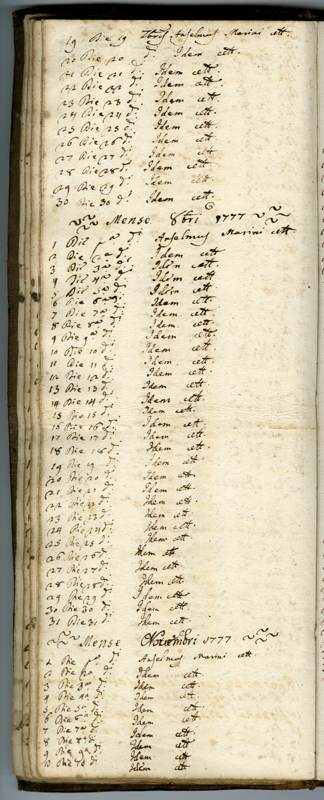 19 Die 19 7bris Anselmus Marini ett.
20 Die 20 d: Idem ett.
21 Die 21 d: Idem ett.
22 Die 22 d: Idem ett.
23 Die 23 d: Idem ett.
24 Die 24 d: Idem ett.
25 Die 25 d: Idem ett.
26 Die 26 d: Idem ett.
27 Die 27 d: Idem ett.
28 Die 28 d: Idem ett.
29 Die 29 d: Idem ett.
30 Die 30 d: Idem ett.
Mense 8bri 1777
1 Die pa d: Anselmus Marini ett
2 Die 2a d: Idem ett
3 Die 3a d: Idem ett
4 Die 4a d: Idem ett
5 Die 5a d: Idem ett
6 Die 6a d: Idem ett
7 Die 7a d: Idem ett.
8 Die 8a d: Idem ett.
9 Die 9a d: Idem ett.
10 Die 10 d: Idem ett
11 Die 11 d: Idem ett.
12 Die 12 d: Idem ett
13 Die 13 d: Idem ett
14 Die 14 d: Idem ett
15 Die 15 d: Idem ett.
16 Die 16 d: Idem ett
17 Die 17 d: Idem ett.
18 Die 18 d: Idem ett.
19 Die 19 d: Idem ett
20 Die 20 d: Idem ett
21 Die 21 d: Idem ett
22 Die 22 d: Idem ett
23 Die 23 d: Idem ett
24 Die 24 d: Idem ett
25 Die 25 d: Idem ett
26 Die 26 d: Idem ett
27 Die 27 d: Idem ett
28 Die 28 d: Idem ett
29 Die 29 d: Idem ett
30 Die 30 d: Idem ett
31 Die 31 d: Idem ett
Mense Novembri 1777
1 Die pa d: Anselmus Marini ett.
2 Die 2a d: Idem ett
3 Die 3a d: Idem ett
4 Die 4a d: Idem ett.
5 Die 5a d: Idem ett
6 Die 6a d: Idem ett
7 Die 7a d: Idem ett.
8 Die 8a d: Idem ett
9 Die 9a d: Idem ett
10 Die 10 d: Idem ett